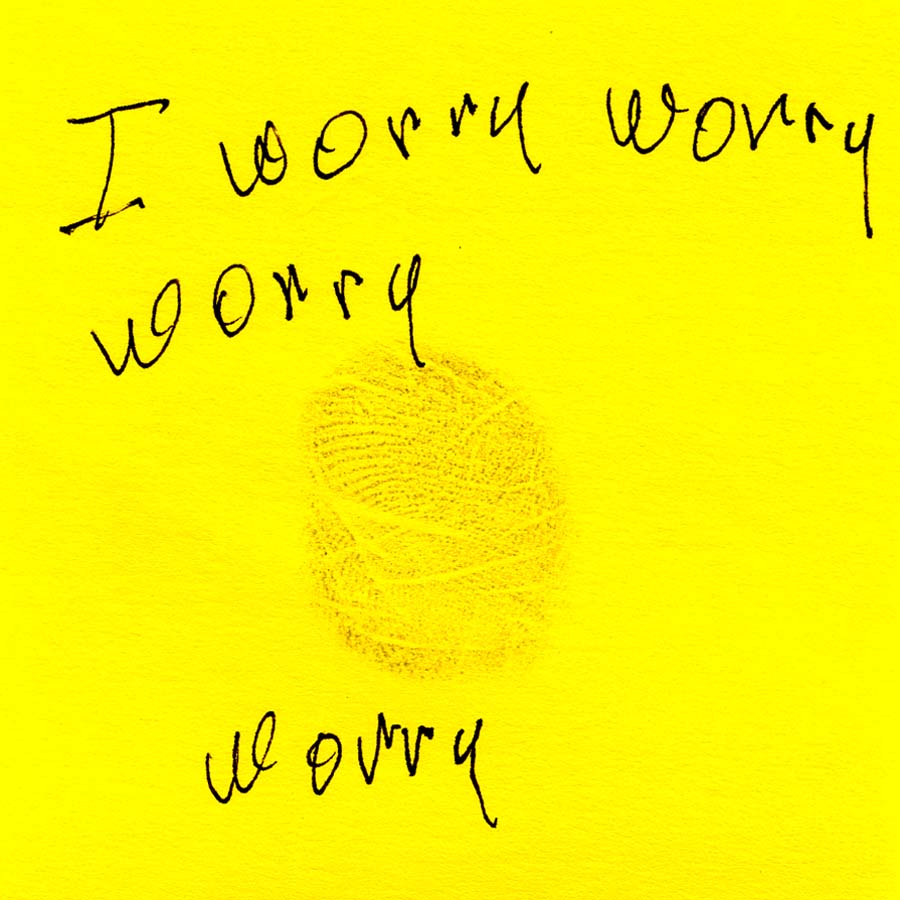 I worry worry
worry
worry